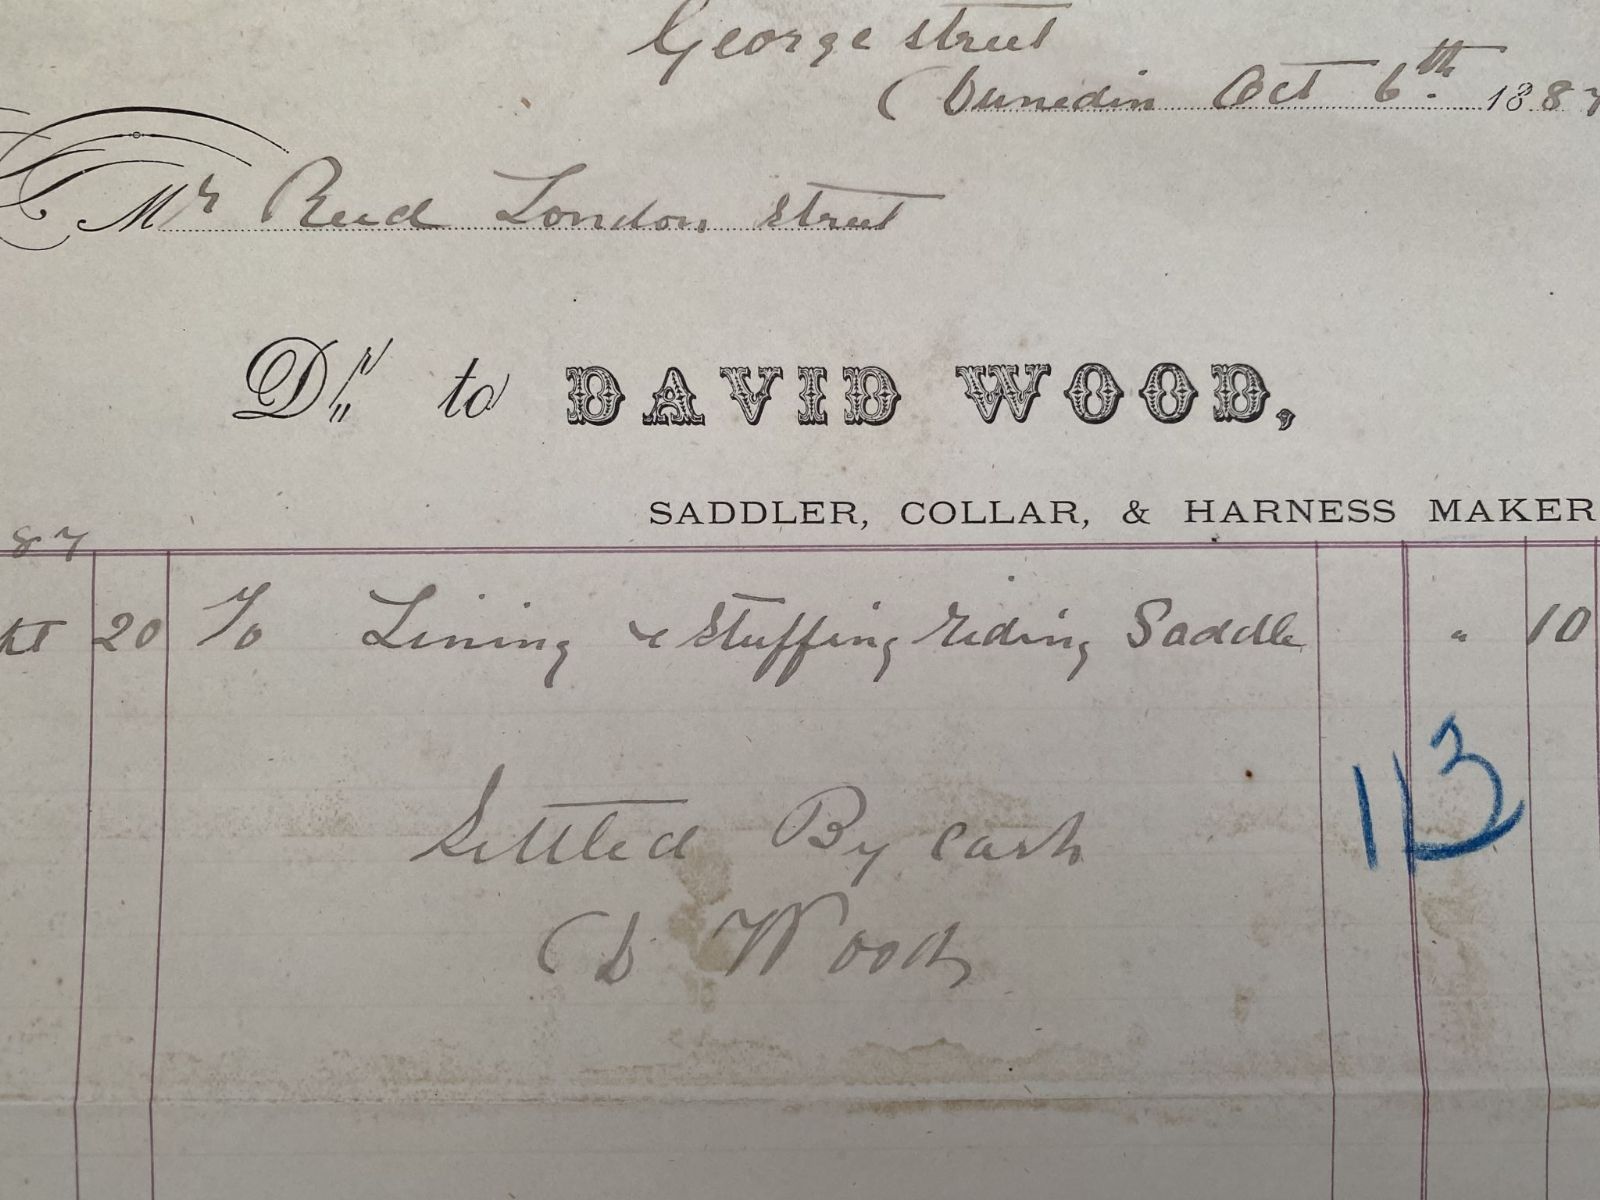 George street
Dunedin Oct 6th 1887
Mr Reid London street
Dr to DAVID WOOD,
SADDLER, COLLAR, & HARNESS MAKER
87
20 To Lining & Stuffing riding Saddle " 10
113
Settled By cash
D Wood